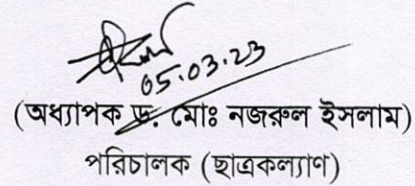 05.03.23
(অধ্যাপক ড. মোঃ নজরুল ইসলাম)
পরিচালক (ছাত্রকল্যাণ)